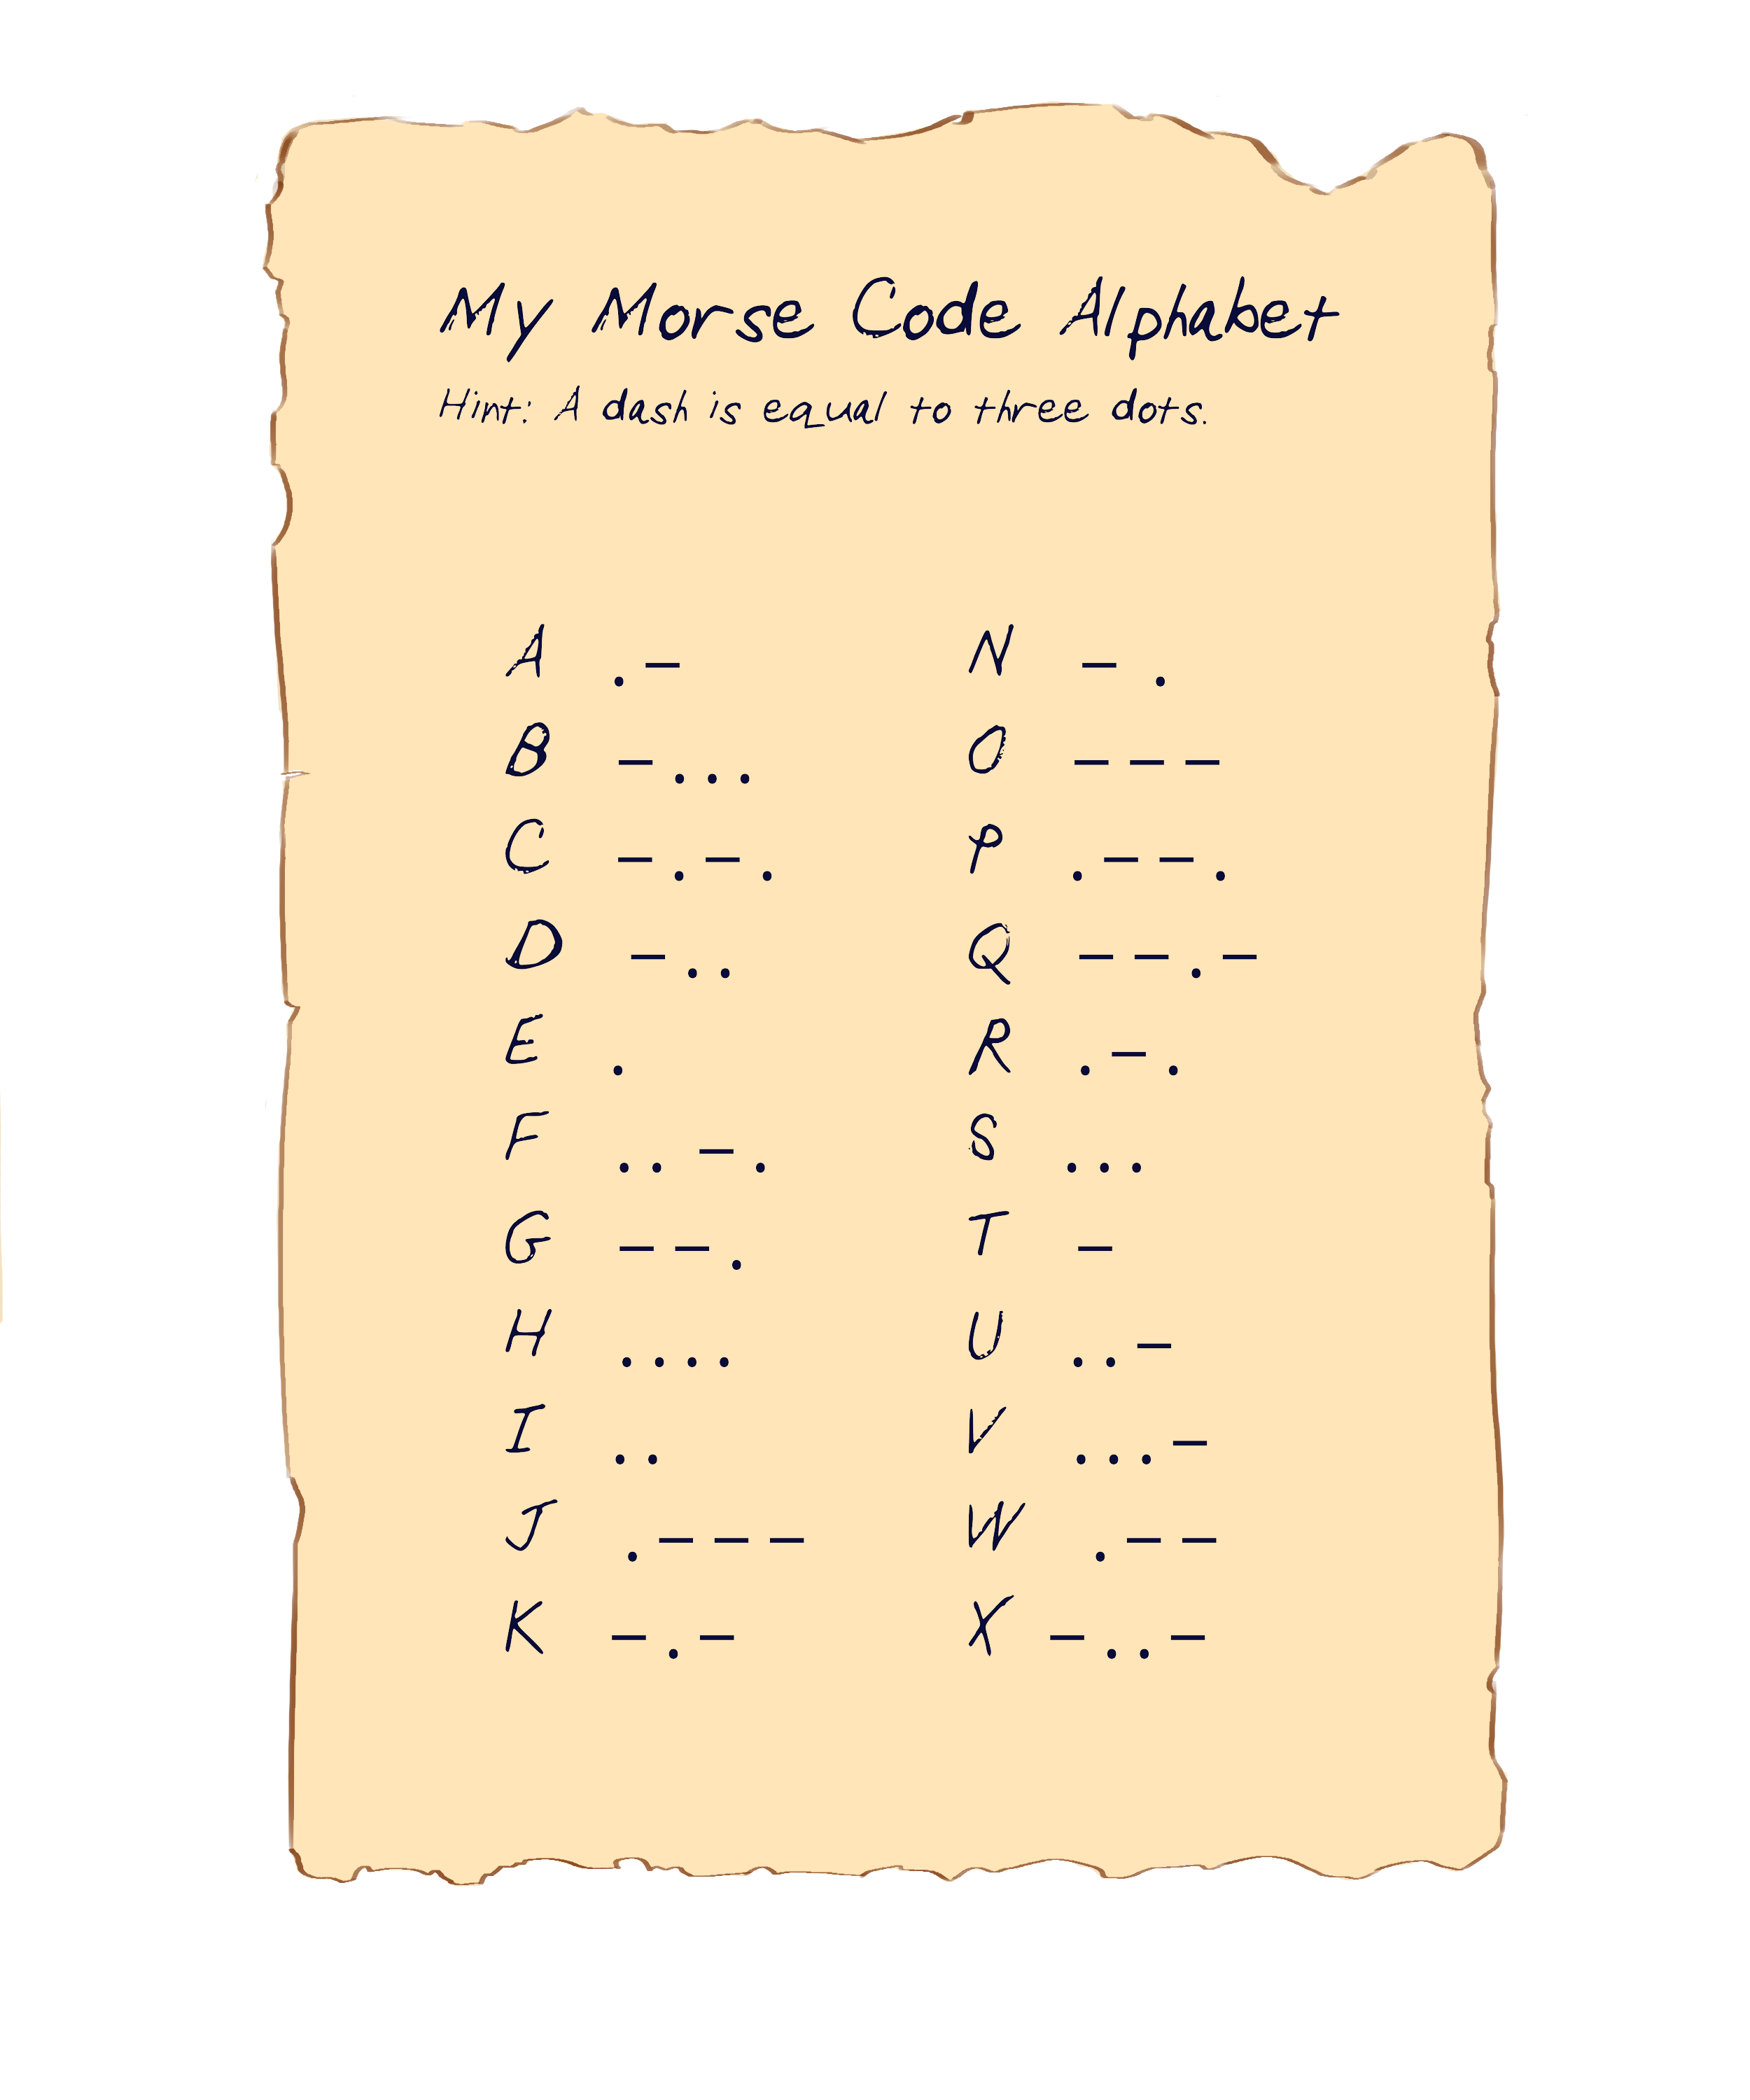 My Morse Code Alphabet
Hint: A dash is equal to three dots.
A .-
B -...
C -.-.
D -..
E .
F ..-.
G --.
H ....
I ..
J .---
K -.-
N -.
O ---
P .--.
Q --.-
R .-.
S ...
T -
U ..-
V ...-
W .--
X -..-